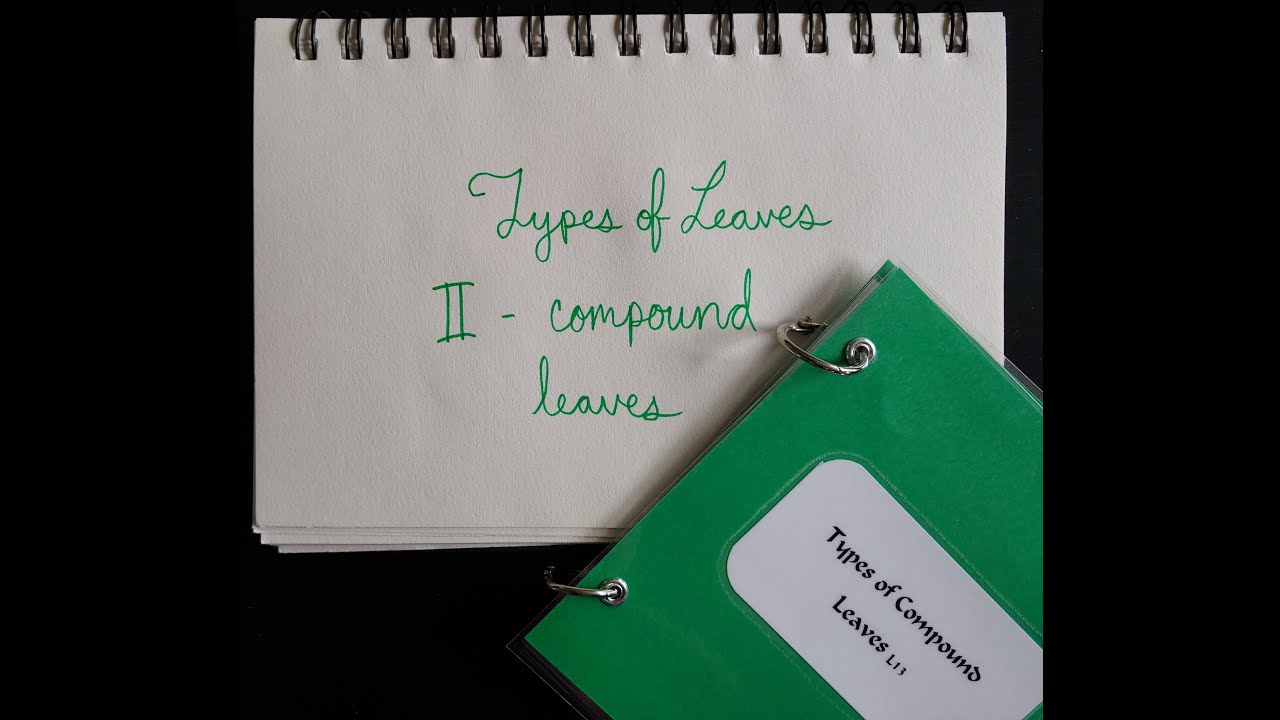 Types of Leaves
II - compound
leaves
Types of Compound
Leaves L13